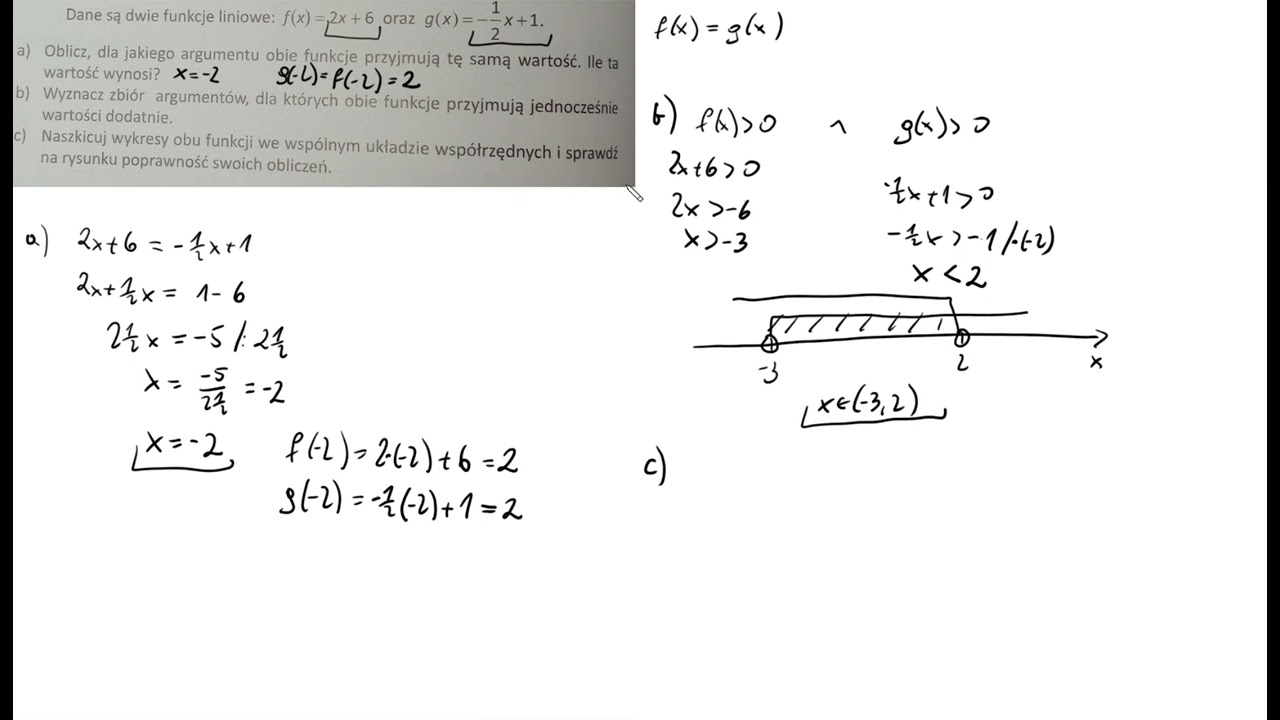 Dane są dwie funkcje liniowe: f(x) = 2x + 6 oraz g(x) = -1/2x + 1.
a) Oblicz, dla jakiego argumentu obie funkcje przyjmują tę samą wartość. Ile ta
wartość wynosi? x=-2 g(-2)=f(-2)=2
b) Wyznacz zbiór argumentów, dla których obie funkcje przyjmują jednocześnie
wartości dodatnie.
c) Naszkicuj wykresy obu funkcji we wspólnym układzie współrzędnych i sprawdź
na rysunku poprawność swoich obliczeń.
a) 2x+6 = -1/2x+1
2x+1/2x = 1-6
2 1/2x = -5 /: 2 1/2
x = -5/2 1/2 = -2
x=-2
f(-2) = 2·(-2)+6 = 2
g(-2) = -1/2(-2)+1 = 2
f(x) = g(x)
b) f(x)>0 ∧ g(x)>0
2x+6>0
2x>-6
x>-3
-1/2x+1>0
-1/2x>-1 /·(-2)
x<2
-3 2 x
x∈(-3,2)
c)